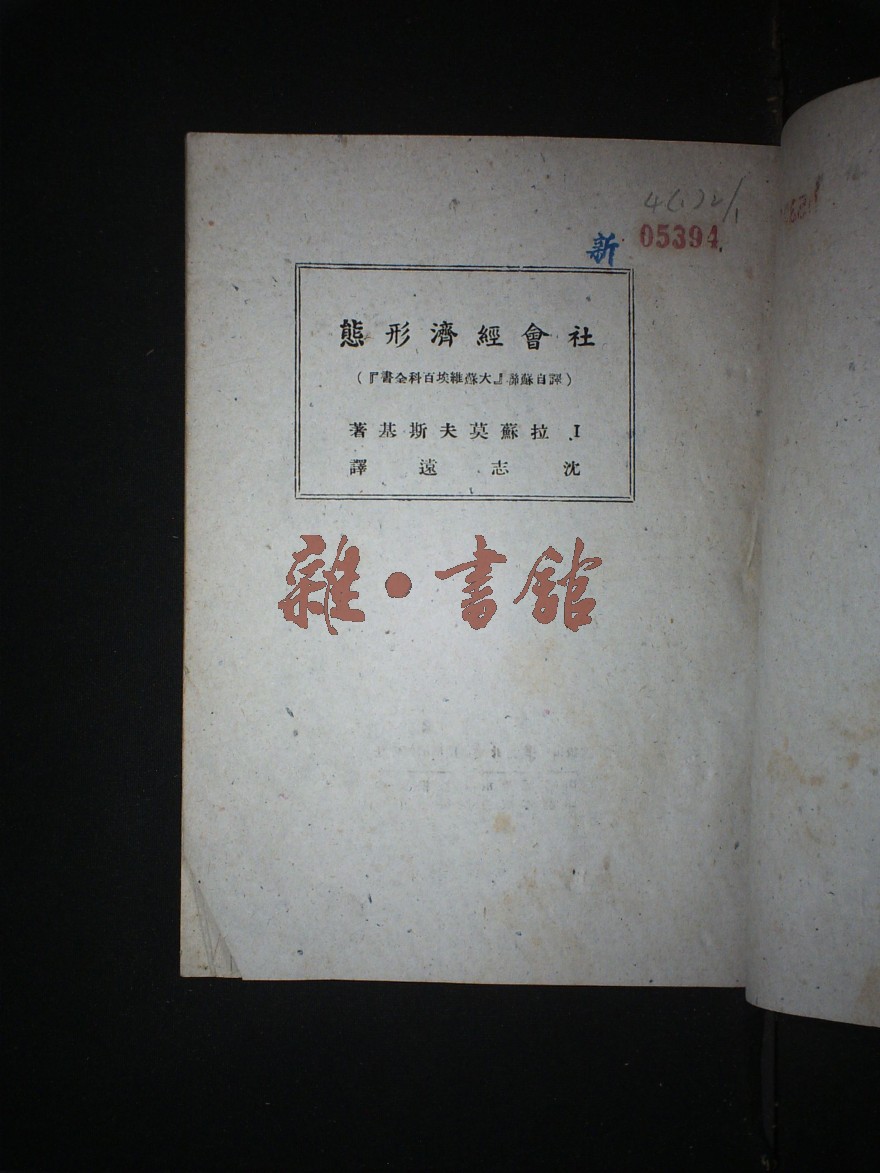 4(1)2/1
新 05394
社會經濟形態
（譯自蘇聯『大蘇維埃百科全書』）
I. 拉蘇莫夫斯基著
沈志遠譯
雜·書館